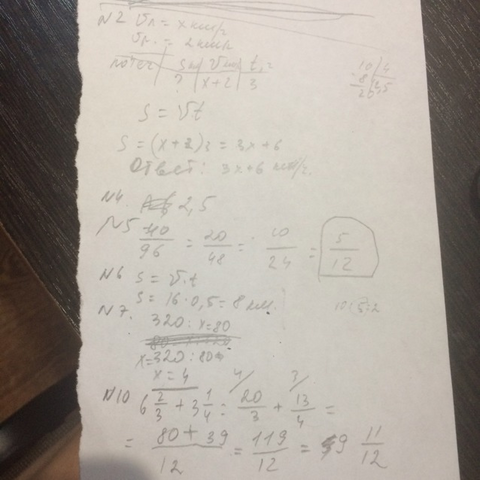 N2 Vл = x км/ч
Vр. = 2 км/ч
S км | V км/ч | t, ч
? | x+2 | 3
10 | 4
8 | 2,5
20
S = Vt
S = (x+2)3 = 3x+6
Ответ: 3x+6 км/ч.
N4. 2,5
N5 40/96 = 20/48 = 10/24 = 5/12
N6 S = V·t
S = 16·0,5 = 8 км.
N7. 320 : x = 80
x = 320 : 80
x = 4
N10 6 2/3 + 3 1/4 = 20/3 + 13/4 =
= 80+39/12 = 119/12 = 9 11/12